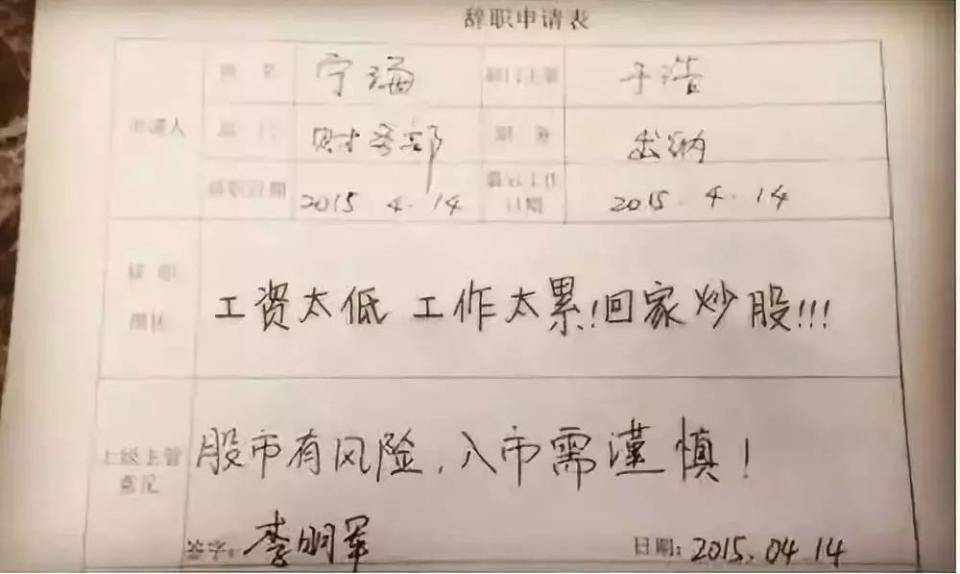 辞职申请表
姓名 宁海 部门主管 于浩
申请人
部门 财务部 职务 出纳
辞职日期 2015.4.14 最后工作日期 2015.4.14
辞职原因 工资太低 工作太累!回家炒股!!!
上级主管意见 股市有风险,入市需谨慎!
签字:李明军 日期:2015.04.14